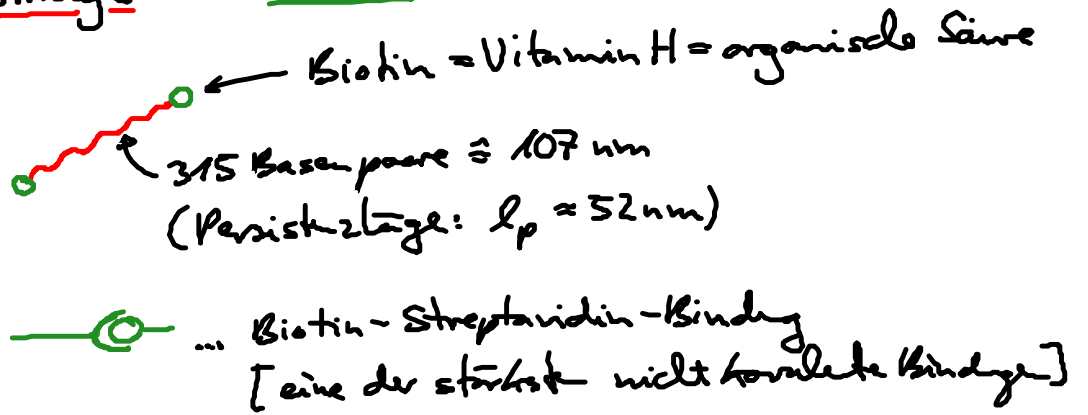 Biotin = Vitamin H = organische Säure
315 Basenpaare ≙ 107 nm
(Persistenzlänge: lp ≈ 52 nm)
... Biotin-Streptavidin-Bindung
[eine der stärksten nicht kovalente Bindungen]